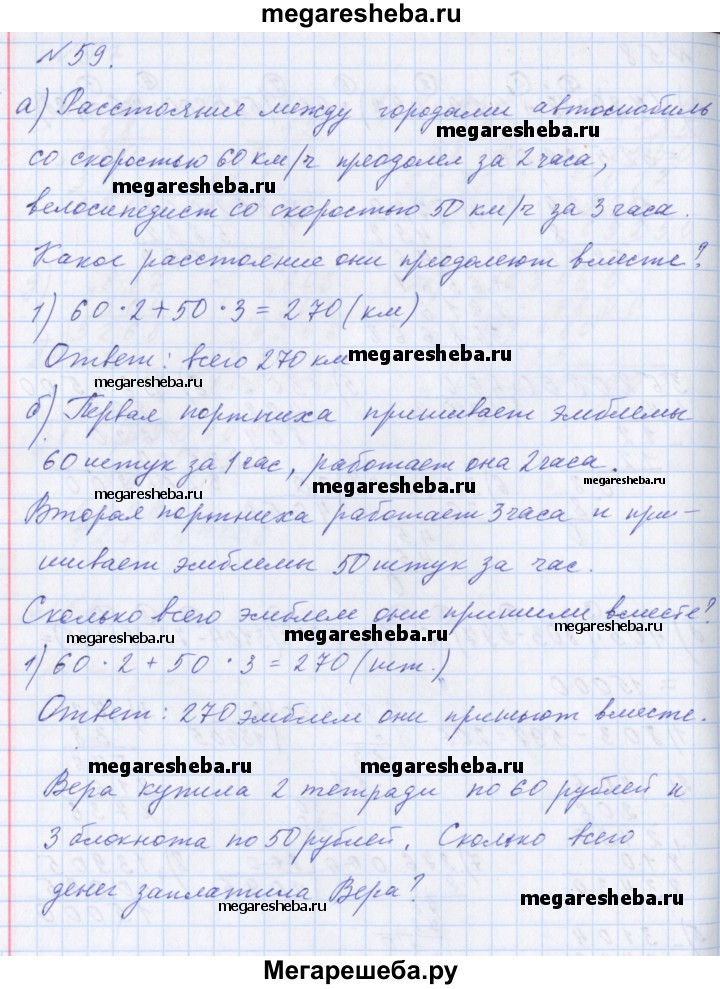 megaresheba.ru
№59.
а) Расстояние между городами автомобиль
megaresheba.ru
со скоростью 60 км/ч преодолел за 2 часа,
megaresheba.ru
велосипедист со скоростью 50 км/ч за 3 часа.
Какое расстояние они преодолеют вместе?
megaresheba.ru
1) 60 · 2 + 50 · 3 = 270 (км)
megaresheba.ru
Ответ: всего 270 км
megaresheba.ru
megaresheba.ru
б) Первая портниха пришивает эмблемы
60 штук за 1 час, работает она 2 часа.
megaresheba.ru
megaresheba.ru
megaresheba.ru
Вторая портниха работает 3 часа и при-
шивает эмблемы 50 штук за час.
Сколько всего эмблем они пришили вместе?
megaresheba.ru
megaresheba.ru
megaresheba.ru
1) 60 · 2 + 50 · 3 = 270 (шт.)
Ответ: 270 эмблем они пришьют вместе.
megaresheba.ru
megaresheba.ru
Вера купила 2 тетради по 60 рублей и
3 блокнота по 50 рублей. Сколько всего
денег заплатила Вера?
megaresheba.ru
megaresheba.ru
Мегарешеба.ру